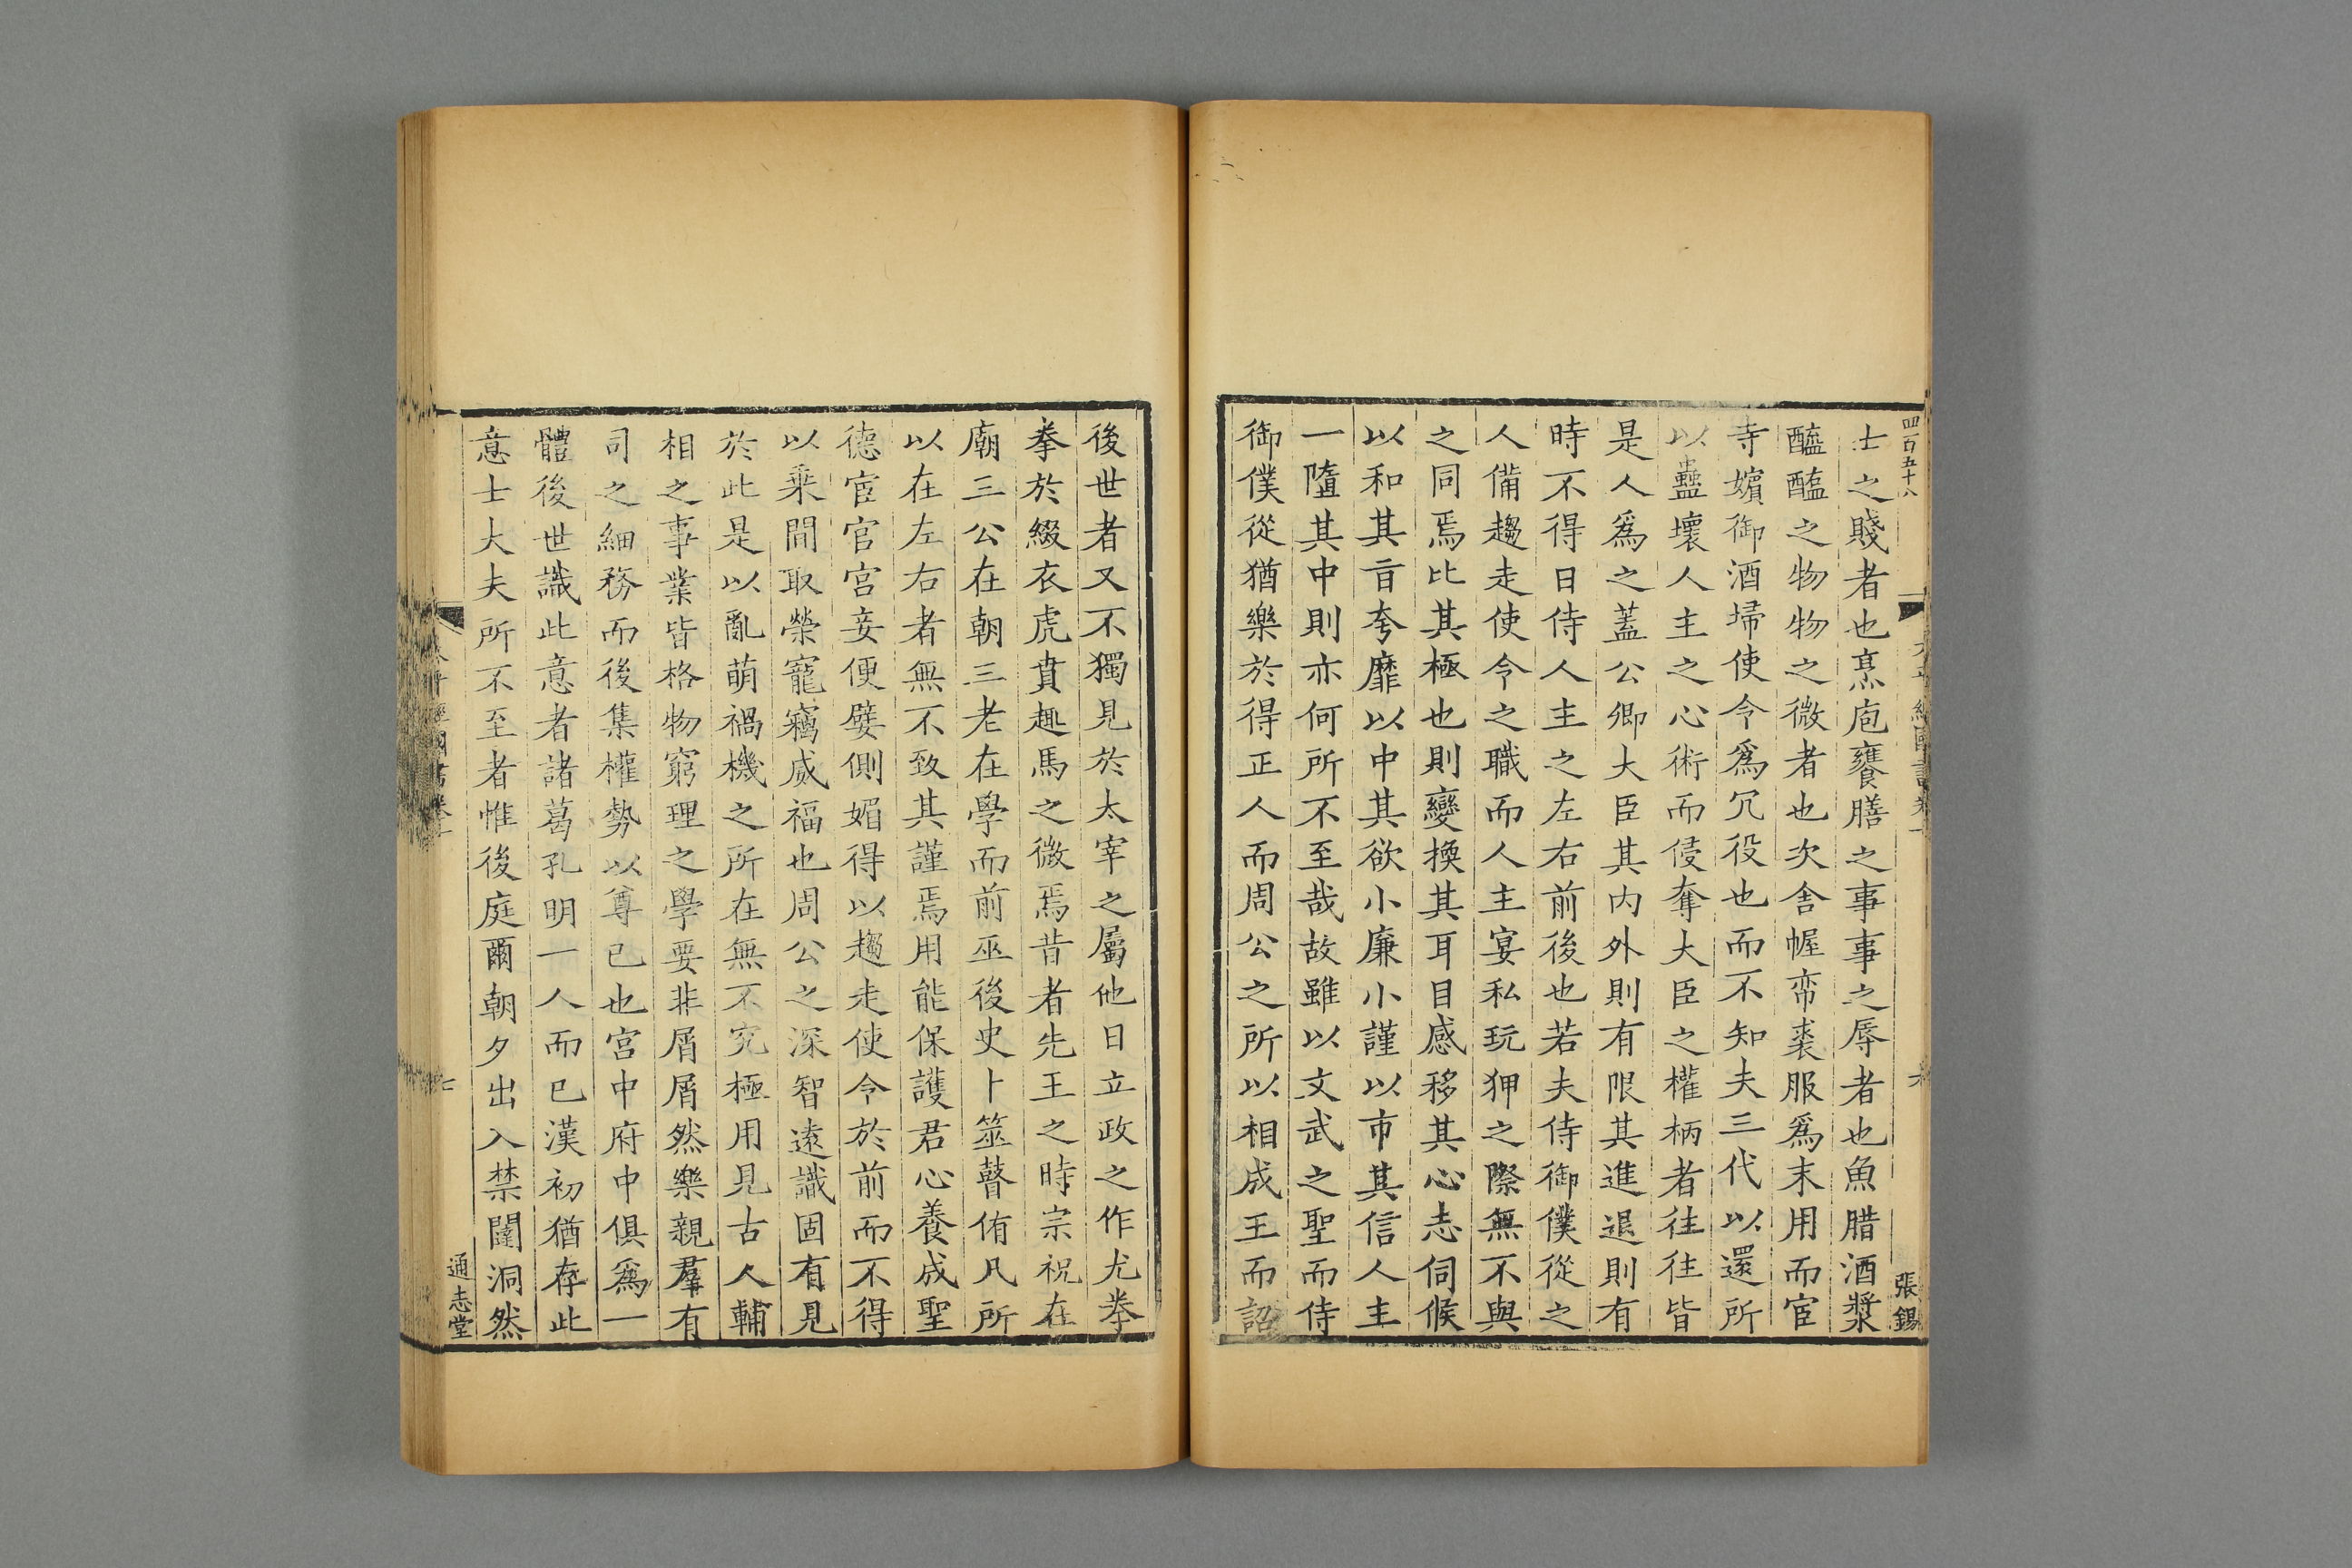 四百五十八
張錫
士之賤者也烹庖饔膳之事事之辱者也魚腊酒漿
醯醢之物物之微者也次舍幄帟裘服爲末用而宦
寺嬪御酒埽使令爲冗役也而不知夫三代以還所
以蠱壞人主之心術而侵奪大臣之權柄者往往皆
是人爲之蓋公卿大臣其内外則有限其進退則有
時不得日侍人主之左右前後也若夫侍御僕從之
人備趨走使令之職而人主宴私玩狎之際無不與
之同焉比其極也則變換其耳目感移其心志伺候
以和其音夸靡以中其欲小廉小謹以市其信人主
一墮其中則亦何所不至哉故雖以文武之聖而侍
御僕從猶樂於得正人而周公之所以相成王而詔
後世者又不獨見於太宰之屬他日立政之作尤拳
拳於綴衣虎賁趣馬之微焉昔者先王之時宗祝在
廟三公在朝三老在學而前巫後史卜筮瞽侑凡所
以在左右者無不致其謹焉用能保護君心養成聖
德宦官宮妾便嬖側媚得以趨走使令於前而不得
以乗間取榮寵竊威福也周公之深智遠識固有見
於此是以亂萌禍機之所在無不究極用見古人輔
相之事業皆格物窮理之學要非屑屑然樂親羣有
司之細務而後集權勢以尊已也宮中府中俱爲一
體後世識此意者諸葛孔明一人而已漢初猶存此
意士大夫所不至者惟後庭爾朝夕出入禁闥洞然
通志堂